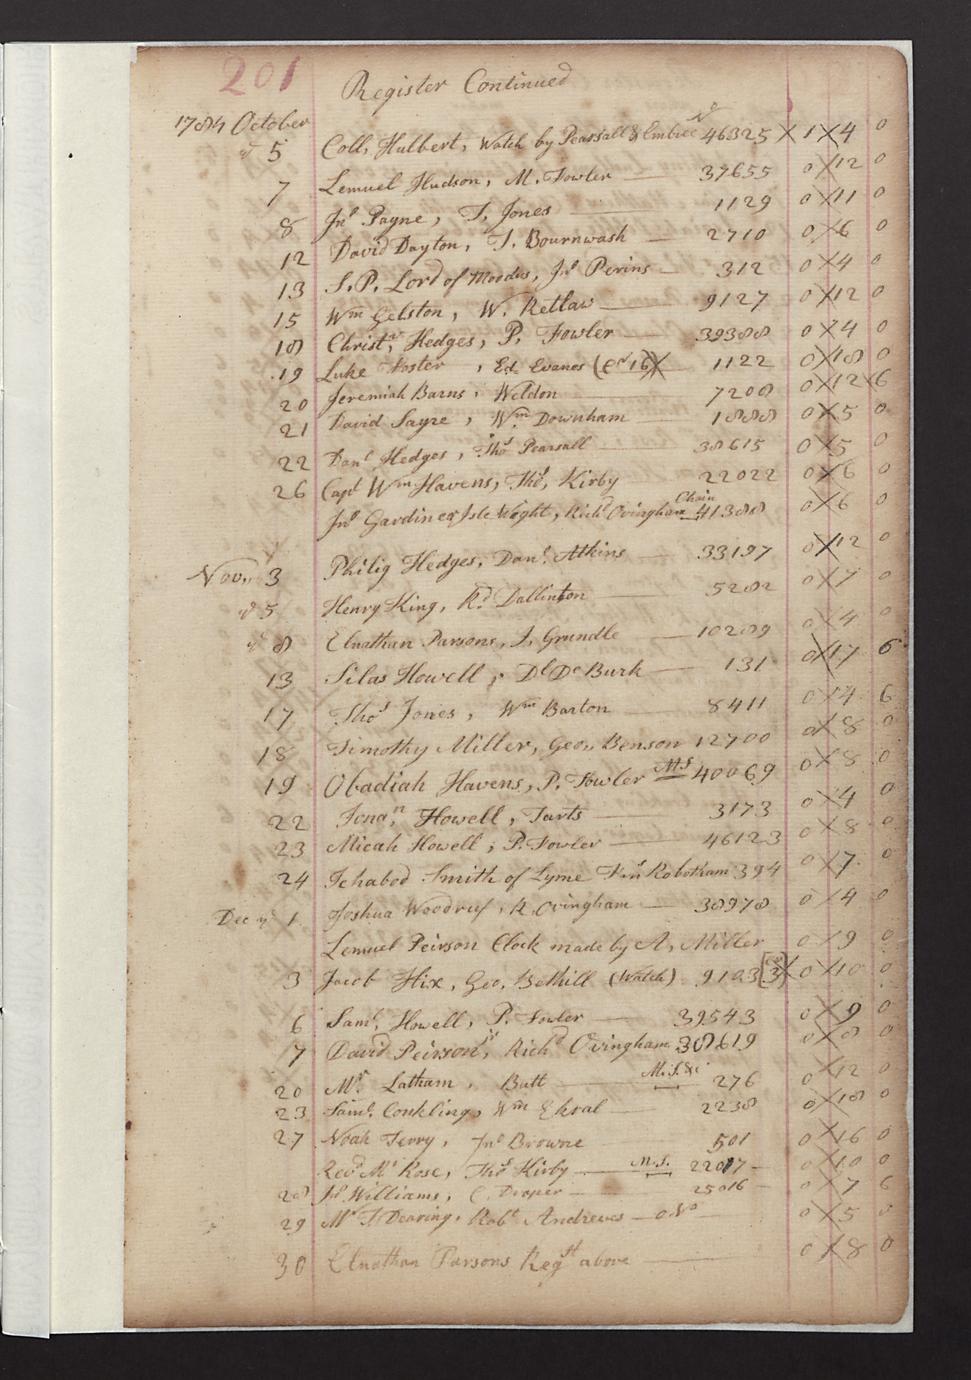 201 Register Continued
1784 October
d 5 Coll, Hulbert, Watch by Pearsall & Embree No 46325 X 1 X 4 0
7 Lemuel Hudson, M. Fowler — 37655 0 X 12 0
8 Jno Payne, T. Jones — 1129 0 X 11 0
12 David Dayton, T. Bournwash — 2710 0 X 6 0
13 S. P. Lord of Moodus, Jno Perins — 312 0 X 4 0
15 Wm Gelston, W. Retlaw — 9127 0 X 12 0
18 Christr, Hedges, P. Fowler — 39388 0 X 4 0
19 Luke Foster, Ed. Evanes (Cr 16) X — 1122 0 X 18 0
20 Jeremiah Barns, Weldon — 7208 0 X 12 X 6
21 David Sayre, Wm Downham — 1888 0 X 5 0
22 Danl Hedges, Thos Pearsall — 38615 0 X 5 0
26 Capt Wm Havens, Thos, Kirby — 22022 0 X 6 0
Jno Gardiner Isle Wight, Richd Ovingham Chain 41388 0 X 6 0
Novr 3 Philip Hedges, Danl Atkins — 33197 0 X 12 0
d 5 Henry King, Rd Dallinton — 5282 0 X 7 0
d 8 Elnathan Parsons, J. Grundle — 10289 0 X 4 0
13 Silas Howell, Dl De Burk — 131 0 X 17 6
17 Thos Jones, Wm Barton — 8411 0 X 4 6
18 Timothy Miller, Geo, Benson 12700 0 X 8 0
19 Obadiah Havens, P. Fowler M.S 40069 0 X 8 0
22 Jonan Howell, Tarts — 3173 0 X 4 0
23 Micah Howell, P. Fowler — 46123 0 X 8 0
24 Ichabod Smith of Lyme Robotham 394 0 X 7 0
Decr 1 Joshua Woodruf, R. Ovingham — 38978 0 X 4 0
Lemuel Peirson Clock made by A, Miller 0 X 9 0
3 Jacob Hix, Geo, Bethill (Watch) 9103 [3] X 0 X 10 0
6 Saml Howell, P. Fowler — 39543 0 X 9 0
17 David Peirson, Richd Ovingham 38619 0 X 8 0
20 Mr Latham, Butt — M.S.&c 276 0 X 12 0
23 Saml Conkling, Wm Ekral — 2238 0 X 18 0
27 Noah Terry, Jno Browne 501 0 X 16 0
Revd Mr Rose, Thos Kirby — M.S. 22017 — 0 X 10 0
28 Jno Williams, C. Draper — 25016 — 0 X 7 6
29 Mr T Dearing, Robt Andrewes — o No — 0 X 5 0
30 Elnathan Parsons Regst above — 0 X 8 0